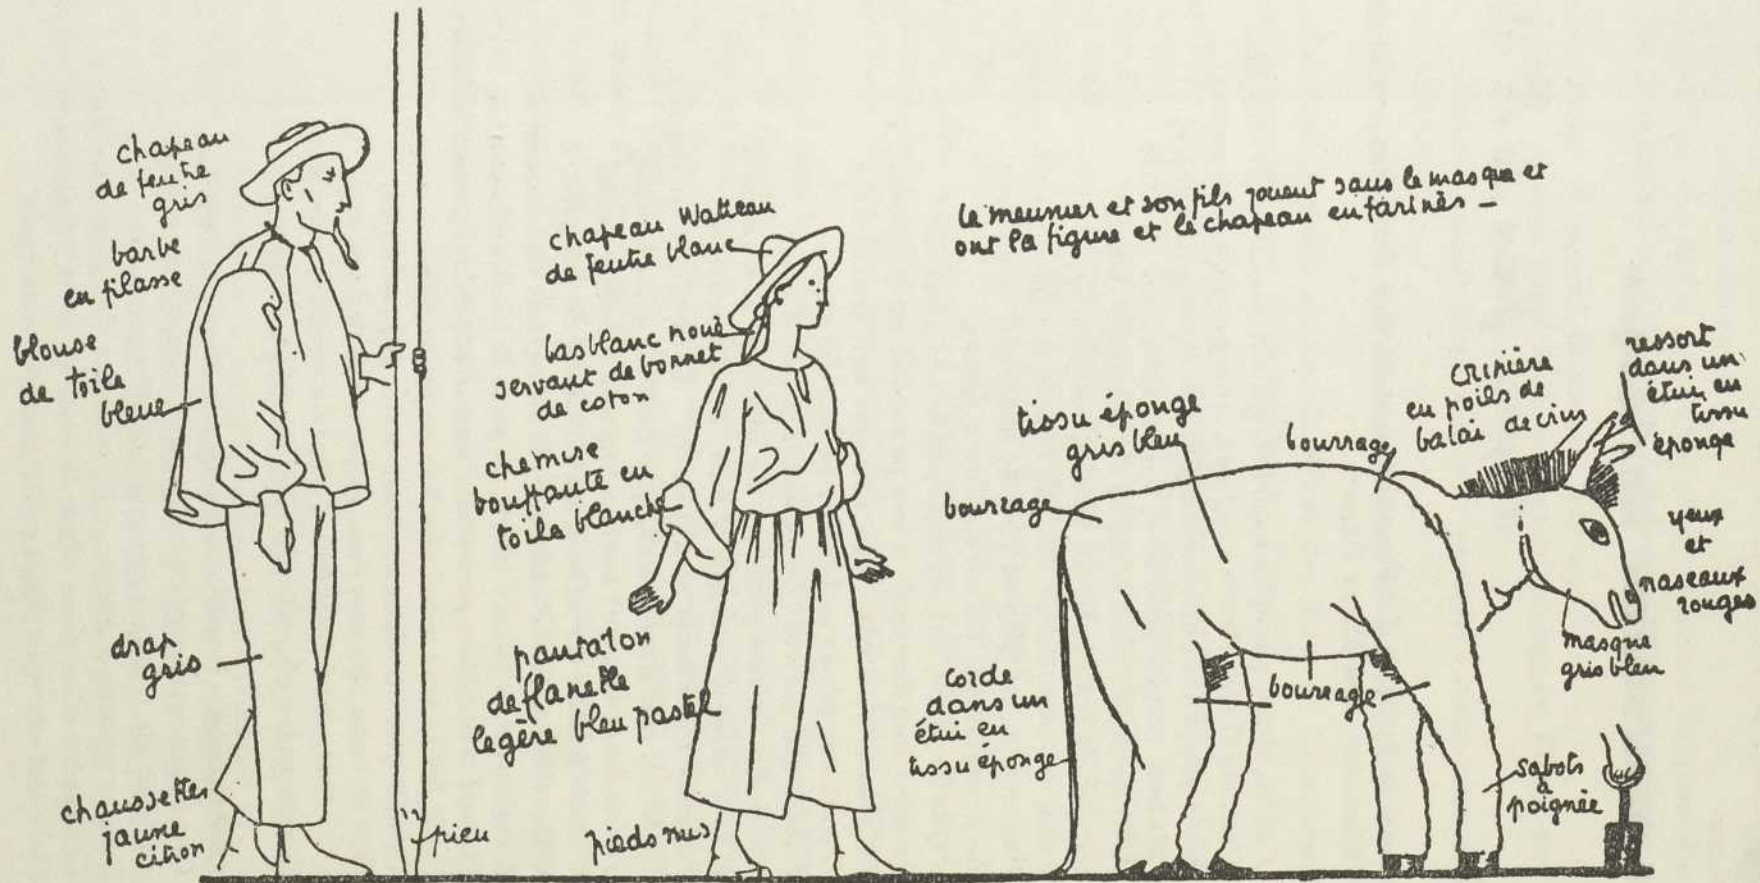 chapeau
de feutre
gris
barbe
en filasse
blouse
de toile
bleue
drap
gris
chaussettes
jaune
citron
pieu
chapeau Watteau
de feutre blanc
bas blanc noué
servant de bonnet
de coton
chemise
bouffante en
toile blanche
pantalon
de flanelle
legère bleu pastel
pieds nus
le meunier et son fils jouent sans le masque et
ont la figure et le chapeau enfarinés —
tissu éponge
gris bleu
bourrage
bourrage
crinière
en poils de
balai de crin
ressort
dans un
étui en
tissu
éponge
yeux
et
naseaux
rouges
masque
gris bleu
bourrage
corde
dans un
étui en
tissu éponge
sabots
à
poignée